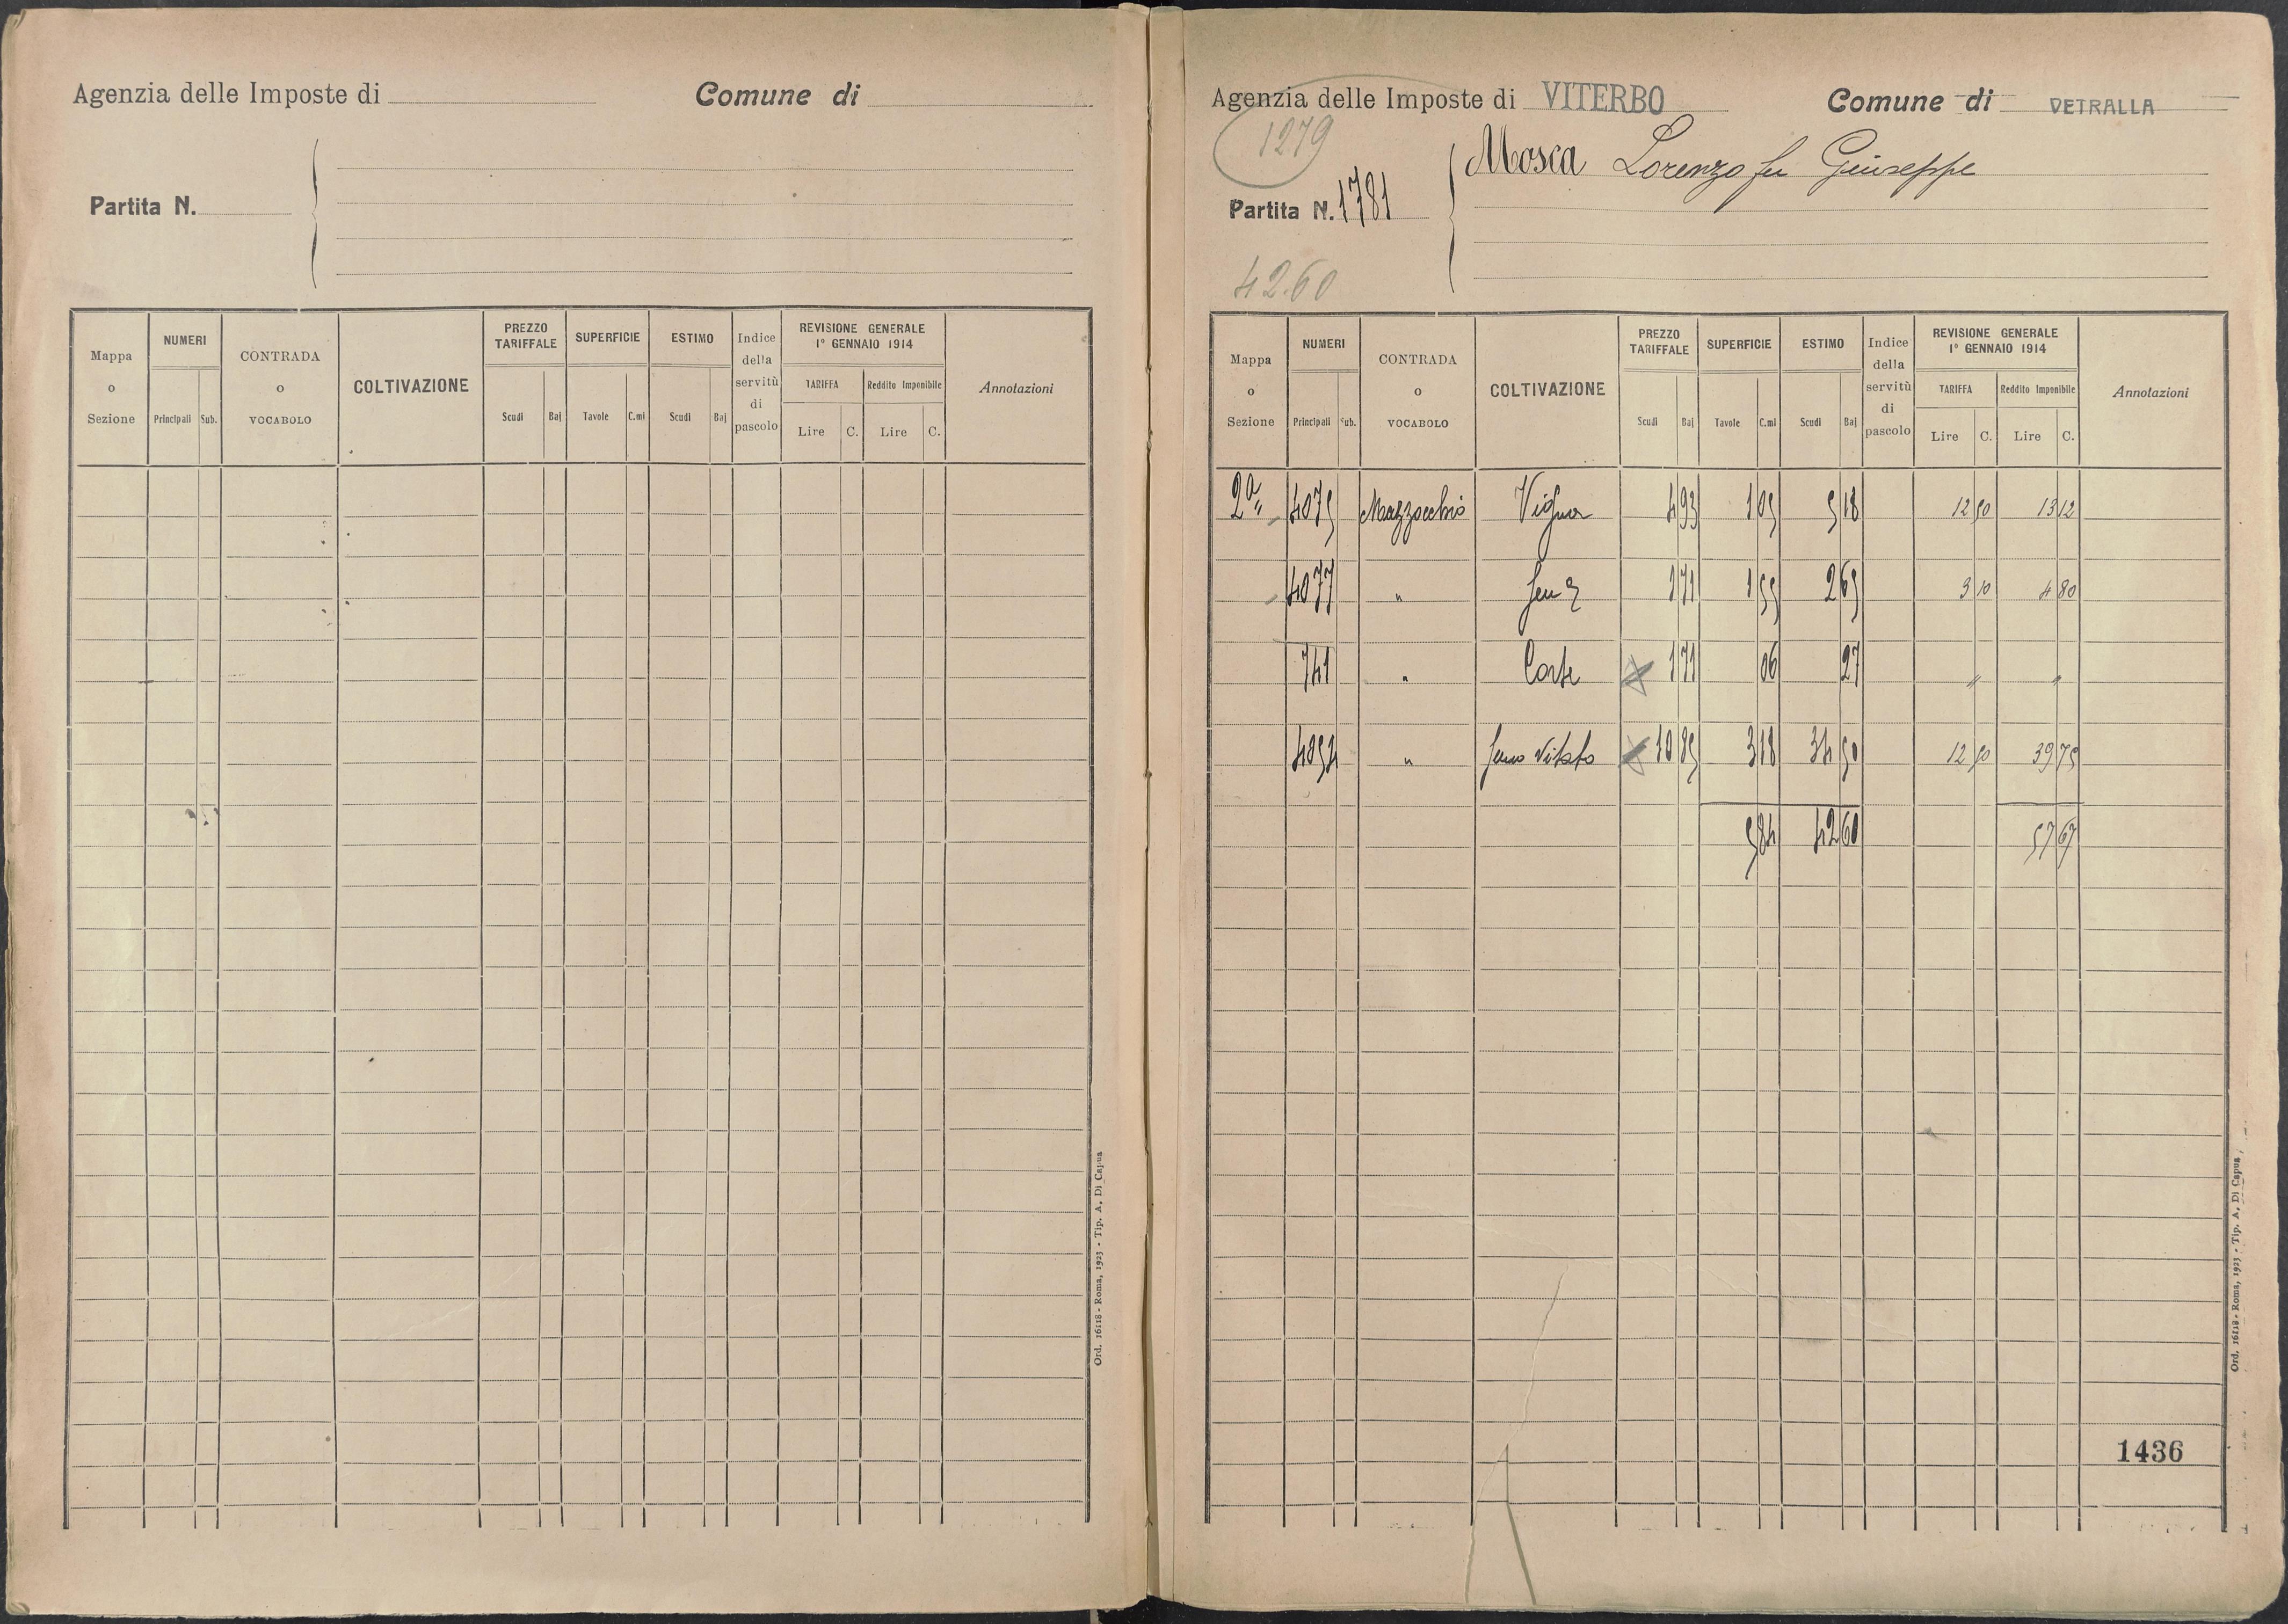 Agenzia delle Imposte di
Comune di
Partita N.
Mappa o Sezione
NUMERI
Principali Sub.
CONTRADA o VOCABOLO
COLTIVAZIONE
PREZZO TARIFFALE
Scudi Baj
SUPERFICIE
Tavole C.mi
ESTIMO
Scudi Baj
Indice della servitù di pascolo
REVISIONE GENERALE
1° GENNAIO 1914
TARIFFA Reddito Imponibile
Lire C. Lire C.
Annotazioni
Ord. 16118 - Roma, 1923 - Tip. A. Di Capua
Agenzia delle Imposte di VITERBO
Comune di VETRALLA
1279
Mosca Lorenzo fu Giuseppe
Partita N. 1781
42.60
Mappa o Sezione
NUMERI
Principali Sub.
CONTRADA o VOCABOLO
COLTIVAZIONE
PREZZO TARIFFALE
Scudi Baj
SUPERFICIE
Tavole C.mi
ESTIMO
Scudi Baj
Indice della servitù di pascolo
REVISIONE GENERALE
1° GENNAIO 1914
TARIFFA Reddito Imponibile
Lire C. Lire C.
Annotazioni
2a " 4075 Mazzocchio Vigna 4 93 1 05 5 18 12 50 13 12
4077 " 1 71 1 55 2 65 3 10 4 80
741 " Corte 1 71 06 27 " "
4054 " Semo Vitato 10 85 3 18 34 50 12 50 39 75
5 84 42 60 57 67
1436
Ord. 16118 - Roma, 1923 - Tip. A. Di Capua